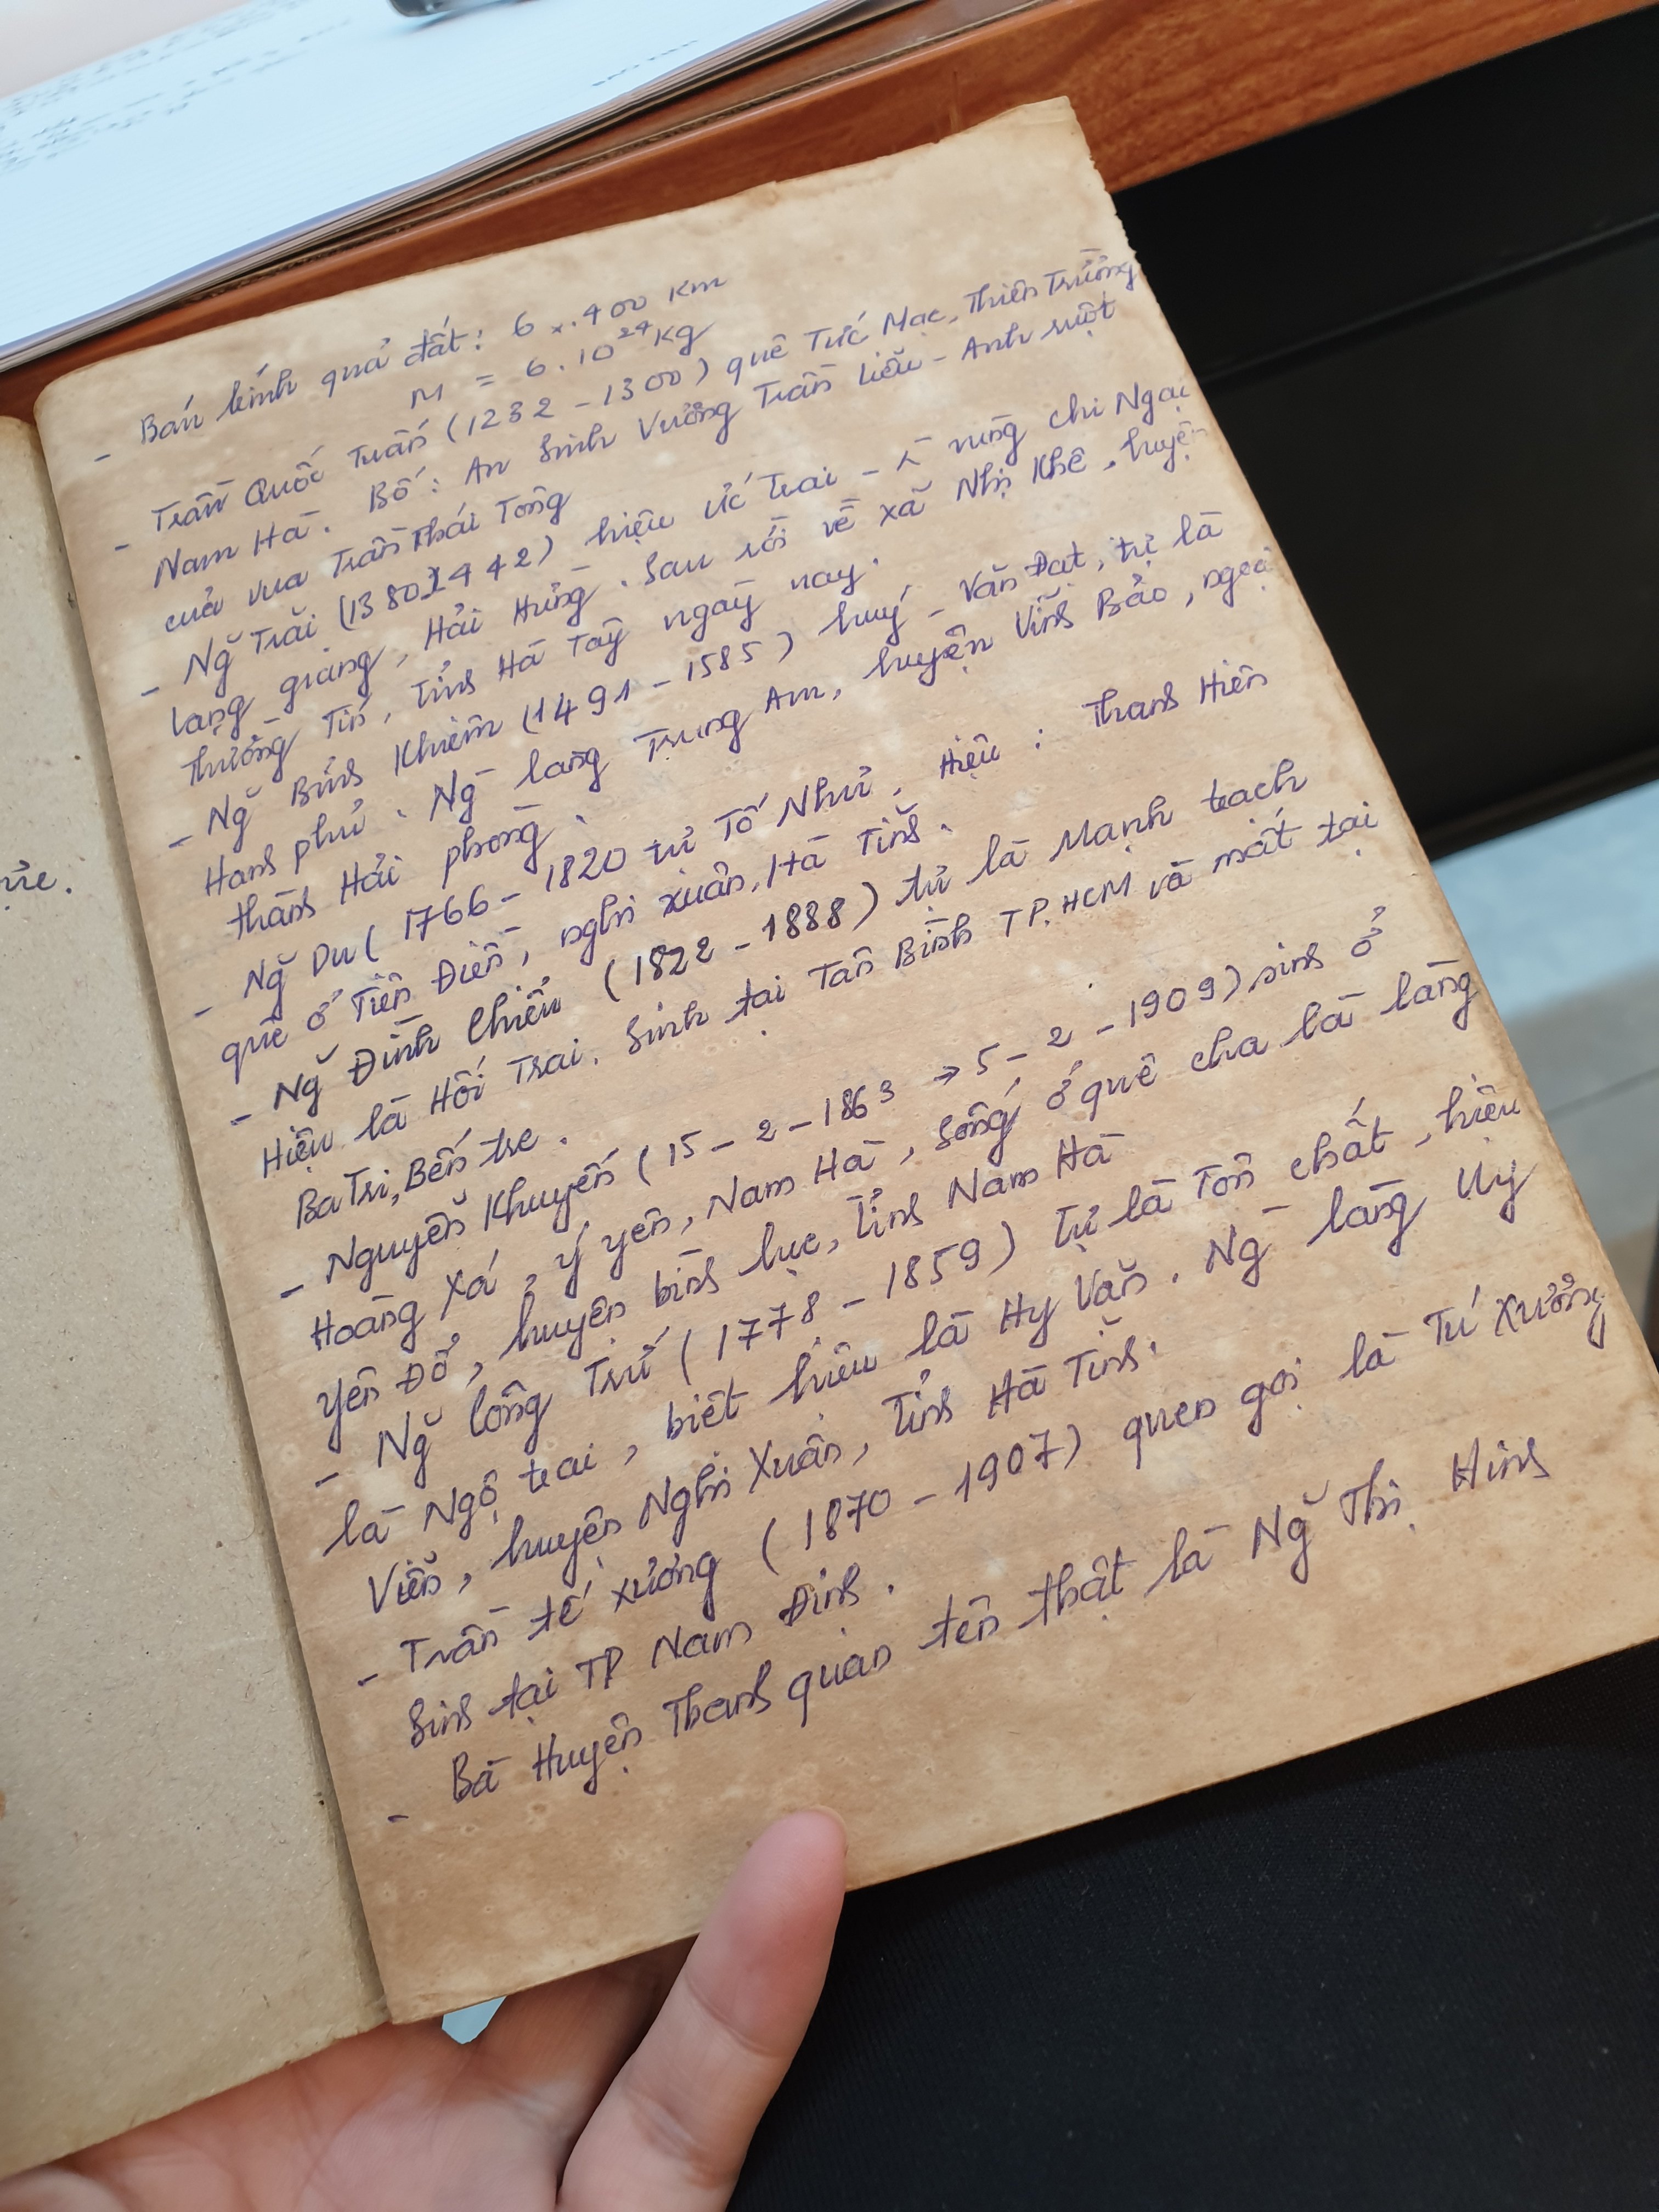 - Bán kính quả đất: 6.400 km
M = 6.10²⁴ kg
- Trần Quốc Tuấn (1232 - 1300) quê Tức Mạc, Thiên Trường
Nam Hà. Bố: An Sinh Vương Trần Liễu - Anh ruột
của vua Trần Thái Tông
- Ng~ Trãi (1380 1442) hiệu Ức Trai - ở vùng chi Ngại
lạng giang, Hải Hưng. Sau rời về xã Nhị Khê, huyện
thường Tín, tỉnh Hà Tây ngày nay.
- Ng~ Bỉnh Khiêm (1491 - 1585) huý - Văn Đạt, tự là
Hanh phủ. Ng~ làng Trung Am, huyện Vĩnh Bảo, ngoại
thành Hải phòng.
- Ng~ Du (1766 - 1820 tử Tố Như, Hiệu: Thanh Hiên
quê ở Tiên Điền, nghi xuân, Hà Tĩnh.
- Ng~ Đình Chiểu (1822 - 1888) tự là Mạnh trạch
Hiệu là Hối Trai. Sinh tại Tân Bình TP.HCM và mất tại
Ba Tri, Bến tre.
- Nguyễn Khuyến (15 - 2 - 1863 → 5 - 2 - 1909) sinh ở
Hoàng Xá, ý yên, Nam Hà, sống ở quê cha là làng
Yên Đổ, huyện bình lục, tỉnh Nam Hà
- Ng~ Công Trứ (1778 - 1859) tự là Tồn chất, hiệu
là Ngộ trai, biệt hiệu là Hy Văn. Ng~ làng Uy
Viễn, huyện Nghi Xuân, tỉnh Hà Tĩnh.
- Trần tế xương (1870 - 1907) quen gọi là Tú Xương
Sinh tại TP Nam Định.
- Bà Huyện Thanh quan tên thật là Ng~ Thị Hinh